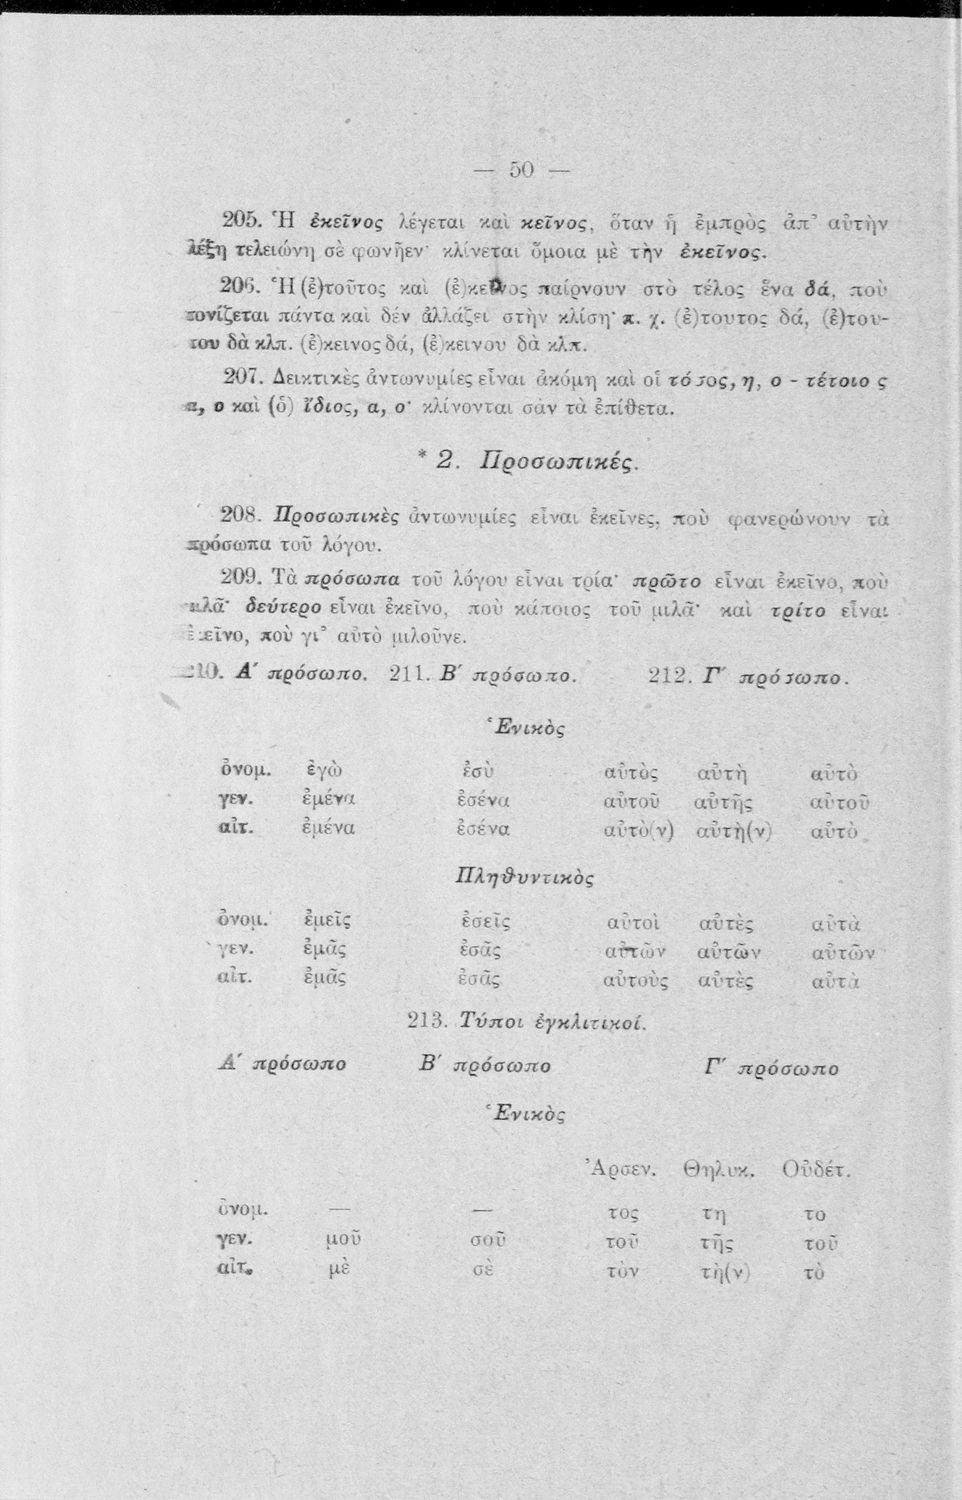 — 50 —
205. Ἡ ἐκεῖνος λέγεται καὶ κεῖνος, ὅταν ἡ ἐμπρὸς ἀπ᾽ αὐτὴν
λέξη τελειώνῃ σὲ φωνῆεν· κλίνεται ὅμοια μὲ τὴν ἐκεῖνος.
206. Ἡ (ἐ)τοῦτος καὶ (ἐ)κεῖνος παίρνουν στὸ τέλος ἕνα δά, ποὺ
τονίζεται πάντα καὶ δέν ἀλλάζει στὴν κλίση· π. χ. (ἐ)τουτος δά, (ἐ)του-
του δὰ κλπ. (ἐ)κεινος δά, (ἐ)κεινου δὰ κλπ.
207. Δεικτικὲς ἀντωνυμίες εἶναι ἀκόμη καὶ οἱ τόσος, η, ο - τέτοιος
α, ο καὶ (ὁ) ἴδιος, α, ο· κλίνονται σὰν τὰ ἐπίθετα.
* 2. Προσωπικές.
208. Προσωπικὲς ἀντωνυμίες εἶναι ἐκεῖνες, ποὺ φανερώνουν τὰ
πρόσωπα τοῦ λόγου.
209. Τὰ πρόσωπα τοῦ λόγου εἶναι τρία· πρῶτο εἶναι ἐκεῖνο, ποὺ
μιλᾶ· δεύτερο εἶναι ἐκεῖνο, ποὺ κάποιος τοῦ μιλᾶ· καὶ τρίτο εἶναι
ἐκεῖνο, ποὺ γι᾽ αὐτὸ μιλοῦνε.
210. Α΄ πρόσωπο. 211. Β΄ πρόσωπο. 212. Γ΄ πρόσωπο.
Ἑνικὸς
ὀνομ. ἐγὼ ἐσὺ αὐτὸς αὐτὴ αὐτὸ
γεν. ἐμένα ἐσένα αὐτοῦ αὐτῆς αὐτοῦ
αἰτ. ἐμένα ἐσένα αὐτὸ(ν) αὐτὴ(ν) αὐτὸ
Πληθυντικὸς
ὀνομ. ἐμεῖς ἐσεῖς αὐτοὶ αὐτὲς αὐτὰ
γεν. ἐμᾶς ἐσᾶς αὐτῶν αὐτῶν αὐτῶν
αἰτ. ἐμᾶς ἐσᾶς αὐτοὺς αὐτὲς αὐτὰ
213. Τύποι ἐγκλιτικοί.
Α΄ πρόσωπο Β΄ πρόσωπο Γ΄ πρόσωπο
Ἑνικὸς
Ἀρσεν. Θηλυκ. Οὐδέτ.
ὀνομ. — — τος τη το
γεν. μοῦ σοῦ τοῦ τῆς τοῦ
αἰτ. μὲ σὲ τὸν τὴ(ν) τὸ